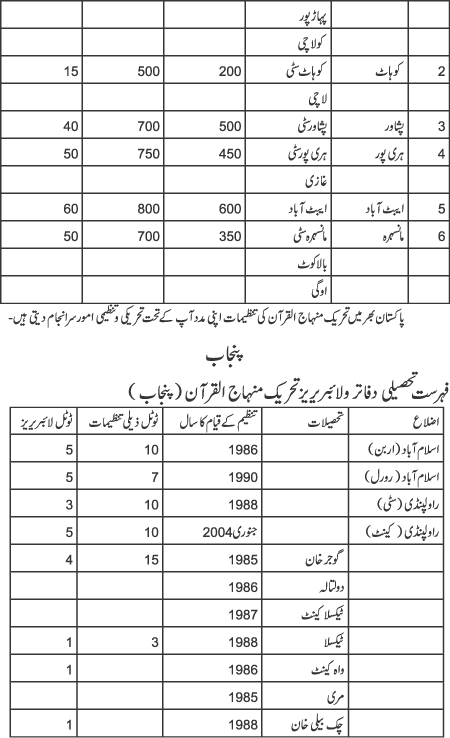 پہاڑ پور
کولاچی
2 کوہاٹ کوہاٹ سٹی 200 500 15
لاچی
3 پشاور پشاور سٹی 500 700 40
4 ہری پور ہری پور سٹی 450 750 50
غازی
5 ایبٹ آباد ایبٹ آباد 600 800 60
6 مانسہرہ مانسہرہ سٹی 350 700 50
بالاکوٹ
اوگی
پاکستان بھر میں تحریک منہاج القرآن کی تنظیمات اپنی مدد آپ کے تحت تحریکی و تنظیمی امور سرانجام دیتی ہیں-
پنجاب
فہرست تحصیلی دفاتر و لائبریریز تحریک منہاج القرآن (پنجاب)
اضلاع تحصیلات تنظیم کے قیام کا سال ٹوٹل ذیلی تنظیمات ٹوٹل لائبریریز
اسلام آباد (اربن) 1986 10 5
اسلام آباد (رورل) 1990 7 5
راولپنڈی (سٹی) 1988 10 3
راولپنڈی (کینٹ) جنوری 2004 10 5
گوجر خان 1985 15 4
دولتالہ 1986
ٹیکسلا کینٹ 1987
ٹیکسلا 1988 3 1
واہ کینٹ 1986 1
مری 1985
چک بیلی خان 1988 1